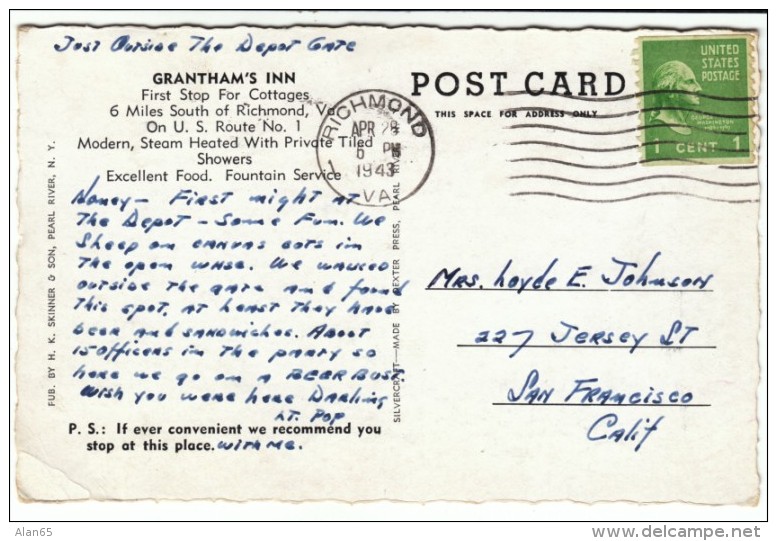 Just Outside The Depot Gate
GRANTHAM'S INN
First Stop For Cottages
6 Miles South of Richmond, Va.
On U. S. Route No. 1
Modern, Steam Heated With Private Tiled
Showers
Excellent Food. Fountain Service
Honey - First night at
The Depot - Some Fun. We
Sleep on canvas cots in
The open whse. We walked
outside the gate and found
this spot. At least they have
beer and sandwiches. About
15 officers in the party so
here we go on a BEER BUST.
Wish you were here Darling
Lt. Pop
P. S.: If ever convenient we recommend you
stop at this place. with me.
PUB. BY H. K. SKINNER & SON, PEARL RIVER, N. Y.
SILVERCRAFT—MADE BY DEXTER PRESS, PEARL RIVER
POST CARD
THIS SPACE FOR ADDRESS ONLY
RICHMOND
APR 28
6 PM
1943
VA.
UNITED
STATES
POSTAGE
GEORGE
WASHINGTON
1 CENT 1
Mrs. Loyde E. Johnson
227 Jersey St
San Francisco
Calif
Alan65
www.delcampe.net